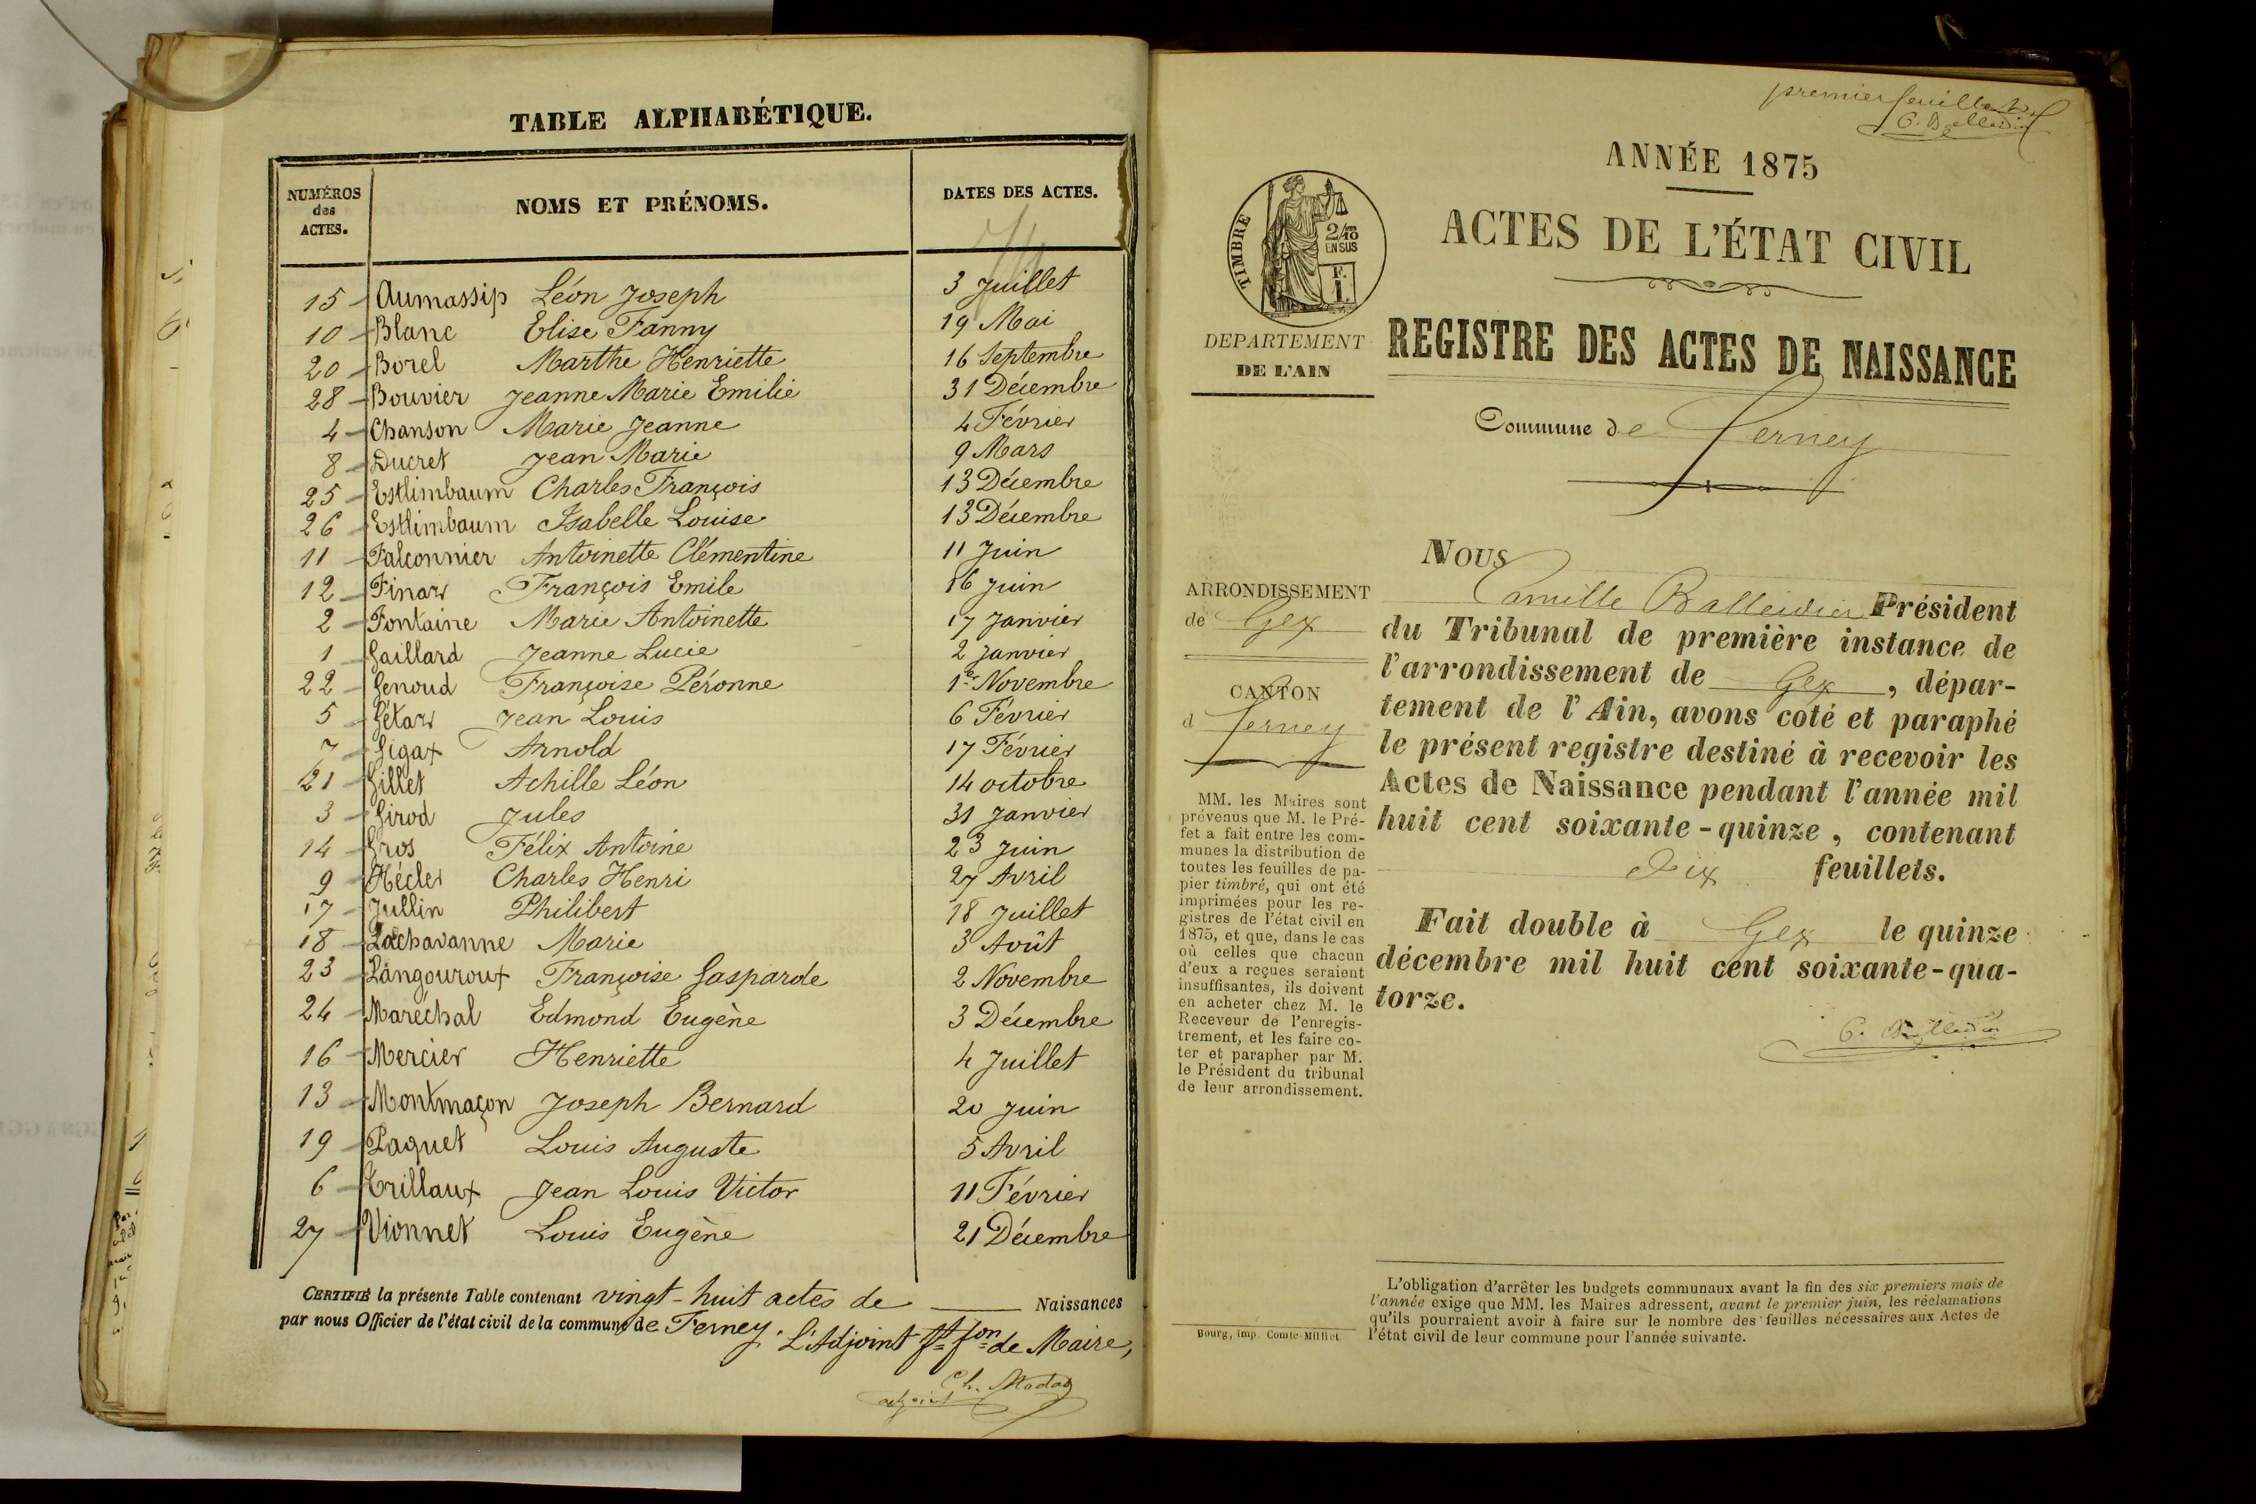 TABLE ALPHABÉTIQUE.
NUMÉROS des ACTES. NOMS ET PRÉNOMS. DATES DES ACTES.
15 Aumassip Léon Joseph 3 Juillet
10 Blanc Elise Fanny 19 Mai
20 Borel Marthe Henriette 16 Septembre
28 Bouvier Jeanne Marie Emilie 31 Décembre
4 Chanson Marie Jeanne 4 Février
8 Ducret Jean Marie 9 Mars
25 Estlimbaum Charles François 13 Décembre
26 Estlimbaum Isabelle Louise 13 Décembre
11 Falconnier Antoinette Clémentine 11 Juin
12 Finar François Emile 16 Juin
2 Fontaine Marie Antoinette 17 Janvier
1 Gaillard Jeanne Lucie 2 Janvier
22 Genoud Françoise Péronne 1er Novembre
5 Gétar Jean Louis 6 Février
7 Gigax Arnold 17 Février
21 Gillet Achille Léon 14 octobre
3 Girod Jules 31 Janvier
14 Gros Félix Antoine 23 Juin
9 Hécler Charles Henri 27 Avril
17 Jullin Philibert 18 Juillet
18 Lachavanne Marie 3 Août
23 Langouroux Françoise Gasparde 2 Novembre
24 Maréchal Edmond Eugène 3 Décembre
16 Mercier Henriette 4 Juillet
13 Montmaçon Joseph Bernard 20 Juin
19 Paquet Louis Auguste 5 Avril
6 Trillaux Jean Louis Victor 11 Février
27 Vionnet Louis Eugène 21 Décembre
CERTIFIÉ la présente Table contenant vingt-huit actes de Naissances
par nous Officier de l'état civil de la commune de Ferney. L'Adjoint ft fon de Maire,
adjoint
premier feuillet
ANNÉE 1875
ACTES DE L'ÉTAT CIVIL
TIMBRE
2/10
EN SUS
F.
I.
DEPARTEMENT
DE L'AIN
REGISTRE DES ACTES DE NAISSANCE
Commune de Ferney
ARRONDISSEMENT
de Gex
CANTON
d Ferney
MM. les Maires sont
prévenus que M. le Pré-
fet a fait entre les com-
munes la distribution de
toutes les feuilles de pa-
pier timbré, qui ont été
imprimées pour les re-
gistres de l'état civil en
1875, et que, dans le cas
où celles que chacun
d'eux a reçues seraient
insuffisantes, ils doivent
en acheter chez M. le
Receveur de l'enregis-
trement, et les faire co-
ter et parapher par M.
le Président du tribunal
de leur arrondissement.
NOUS
Camille Balleidier Président
du Tribunal de première instance de
l'arrondissement de Gex, dépar-
tement de l'Ain, avons coté et paraphé
le présent registre destiné à recevoir les
Actes de Naissance pendant l'année mil
huit cent soixante-quinze, contenant
Dix feuillets.
Fait double à Gex le quinze
décembre mil huit cent soixante-qua-
torze.
L'obligation d'arrêter les budgets communaux avant la fin des six premiers mois de
l'année exige que MM. les Maires adressent, avant le premier juin, les réclamations
qu'ils pourraient avoir à faire sur le nombre des feuilles nécessaires aux Actes de
l'état civil de leur commune pour l'année suivante.
Bourg, imp. Comte-Milliet